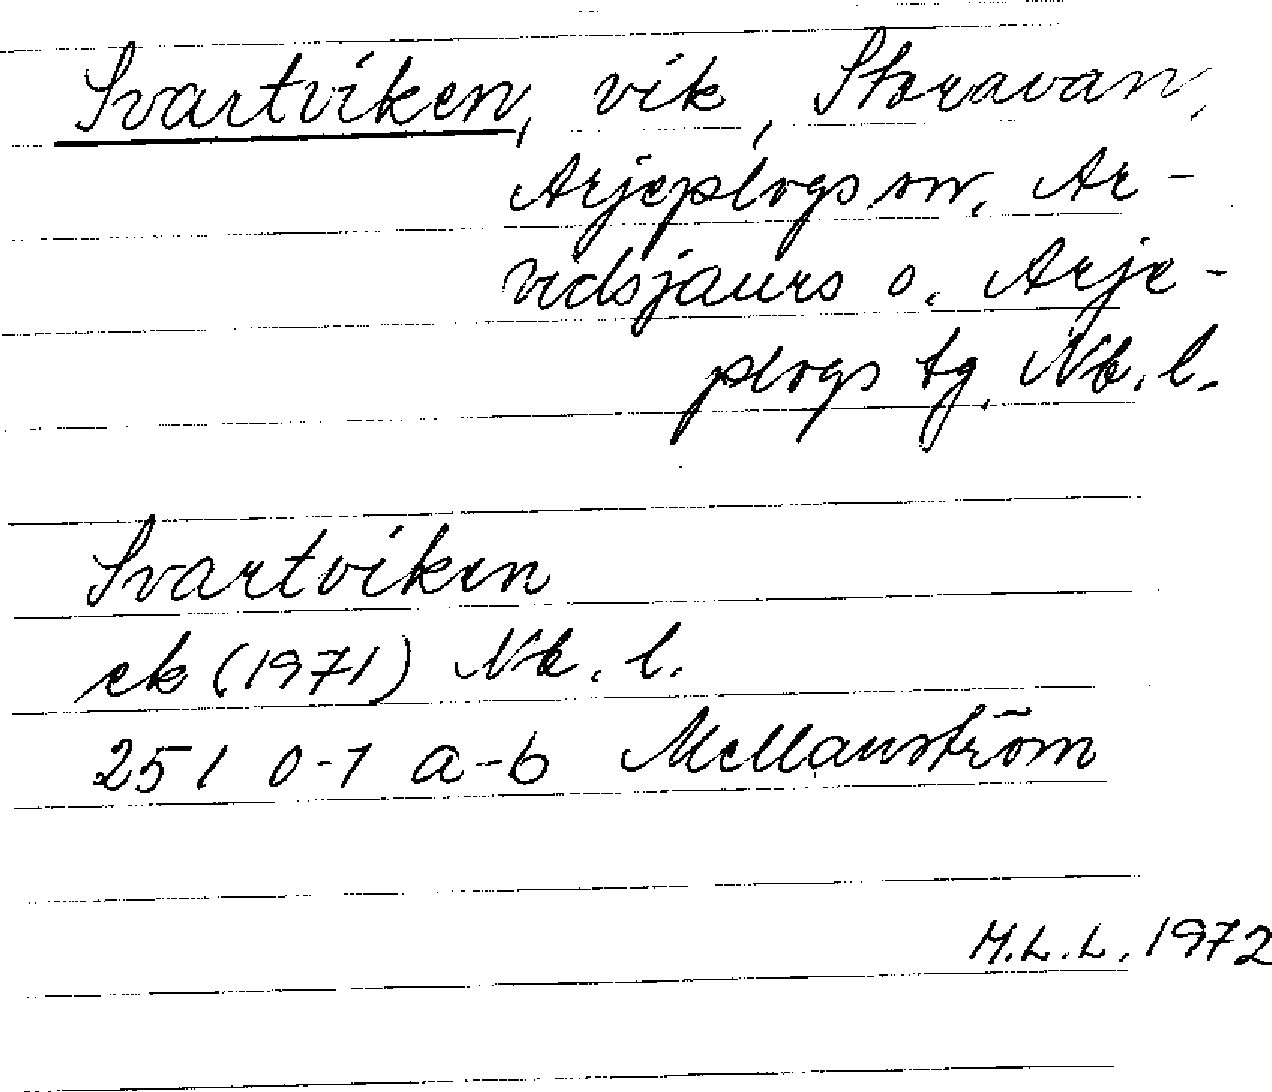 Svartviken, vik, Storavan,
Arjeplogs sn, Ar-
vidsjaurs o. Arje-
plogs tg, Nb. l.
Svartviken
ek (1971) Nb. l.
251 0-1 a-b Mellanström
M.L.L. 1972